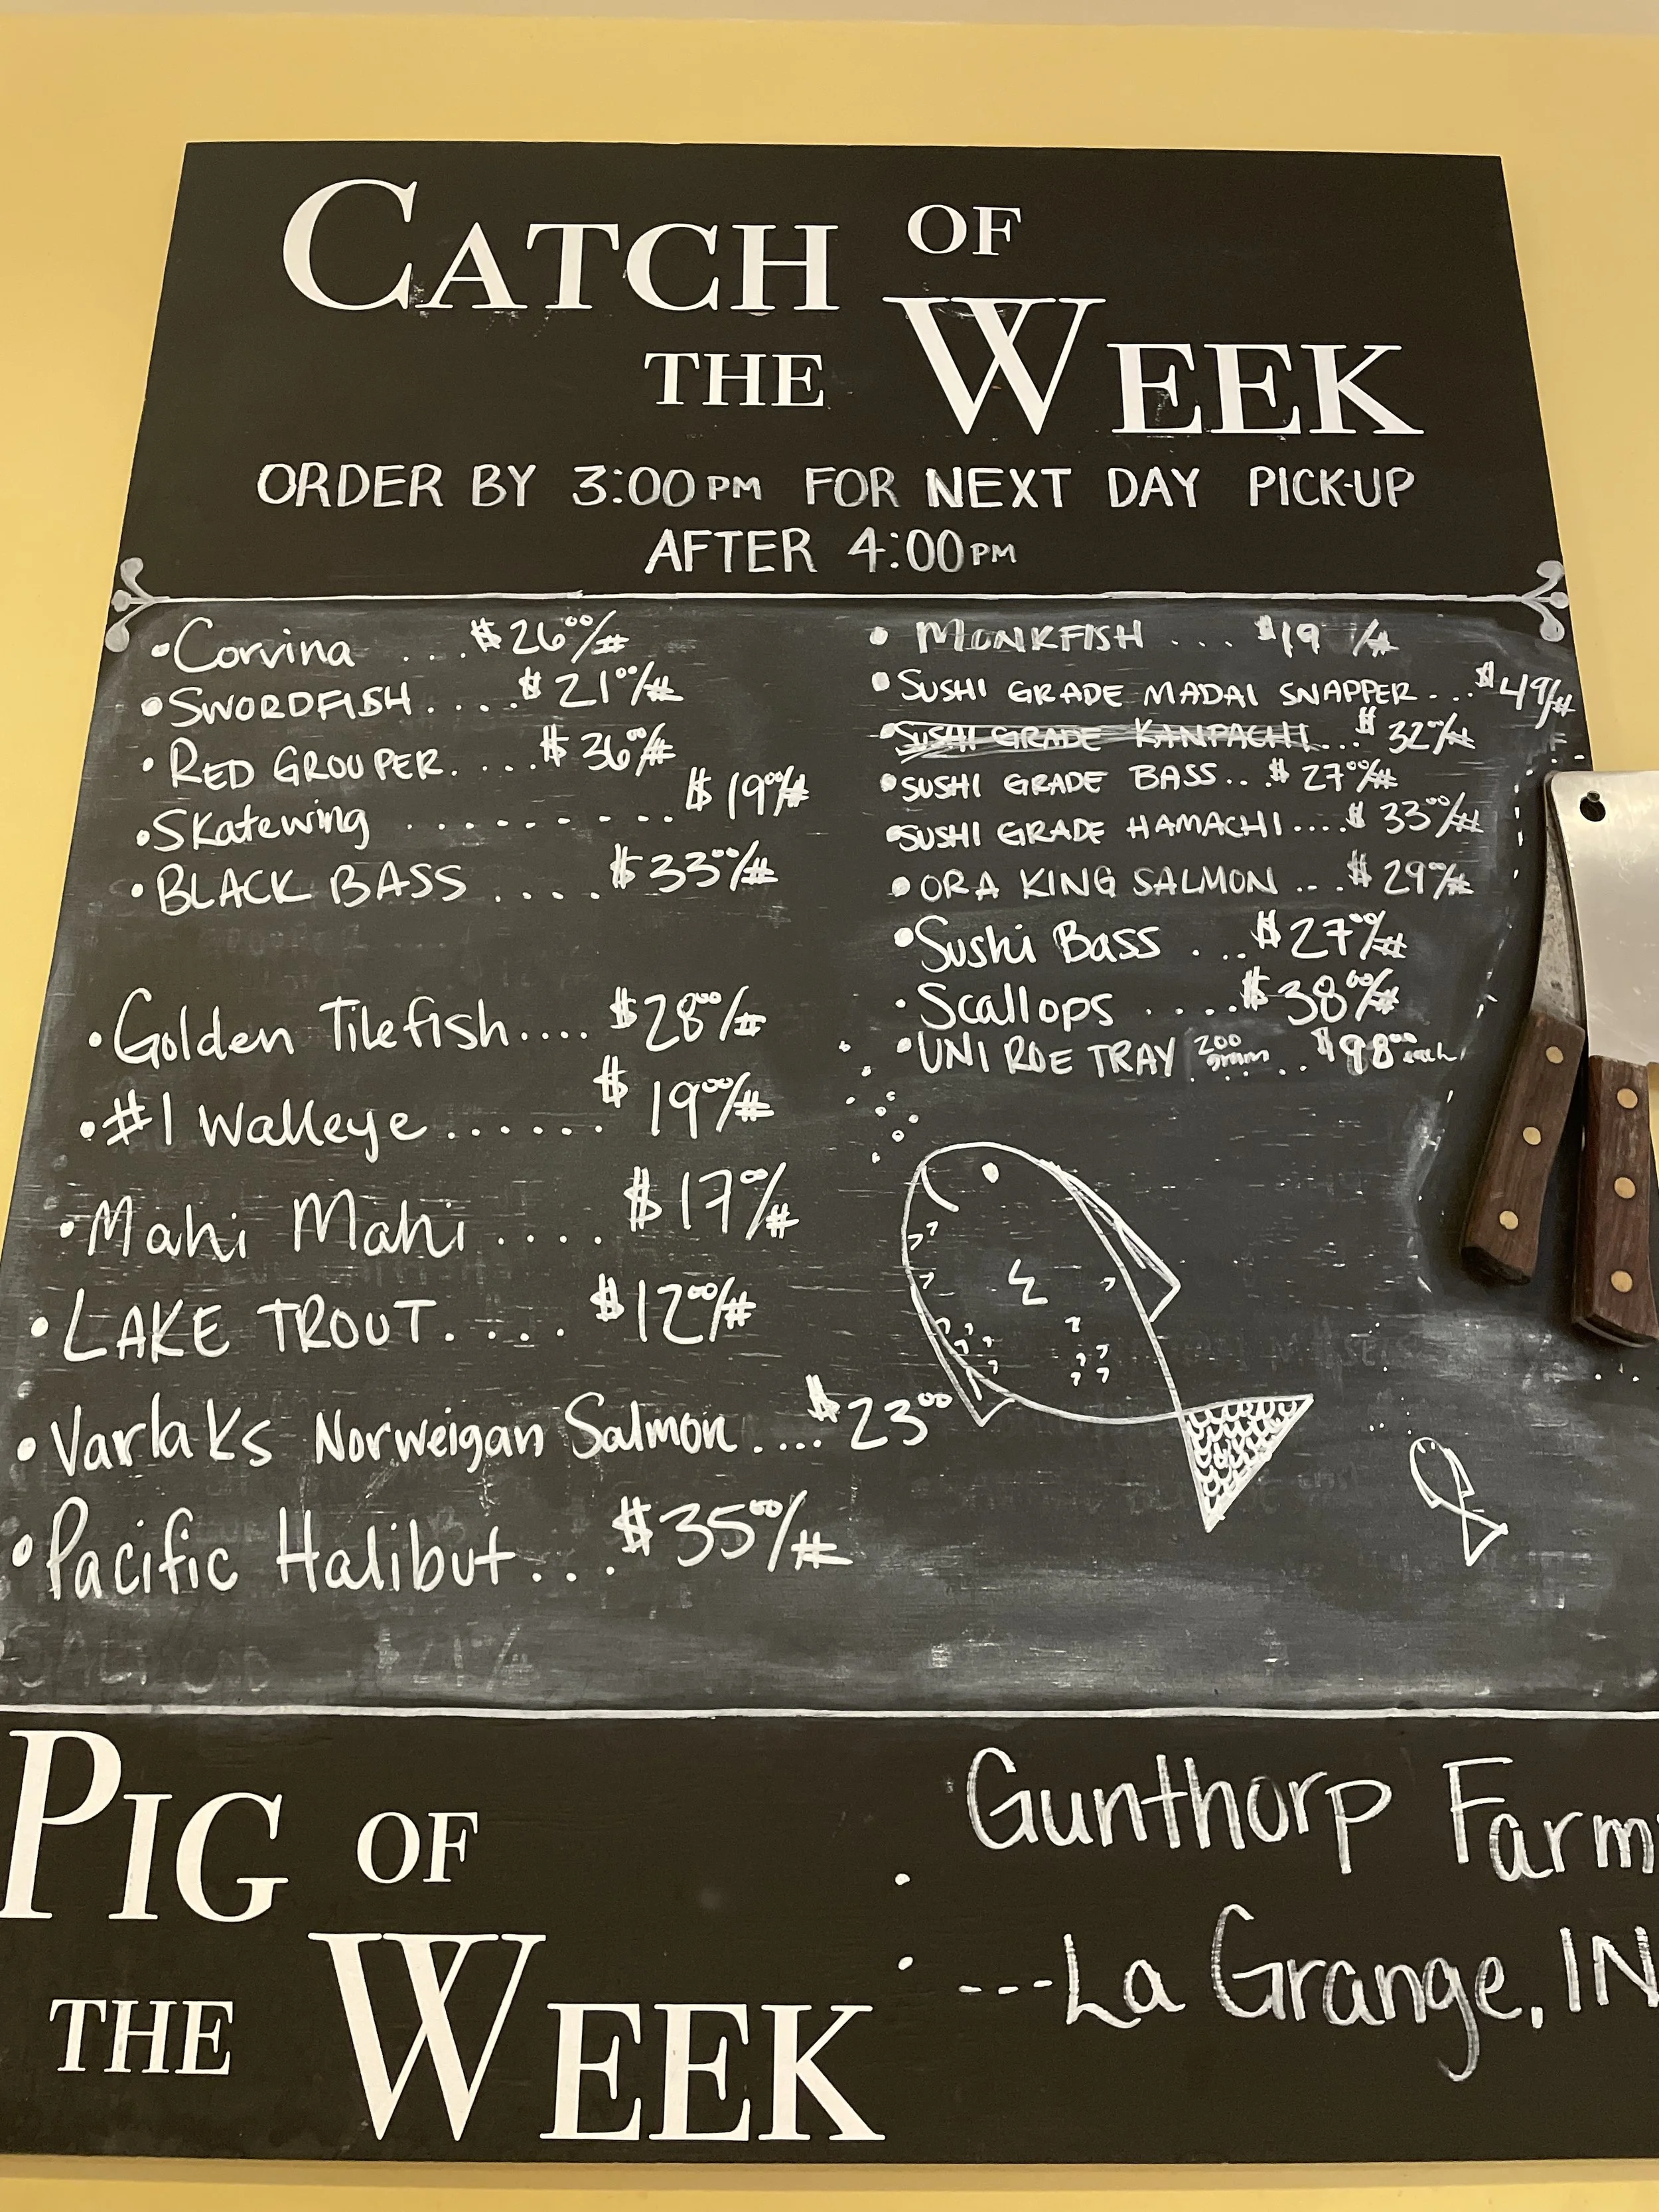 CATCH OF
THE WEEK
ORDER BY 3:00 PM FOR NEXT DAY PICK-UP
AFTER 4:00 PM
•Corvina ... $26⁰⁰/#
•SWORDFISH..... $21⁰⁰/#
•RED GROUPER..... $36⁰⁰/#
•Skatewing ......... $19⁰⁰/#
•BLACK BASS .... $33⁰⁰/#
•Golden Tilefish.... $28⁰⁰/#
•#1 Walleye ...... $19⁰⁰/#
•Mahi Mahi .... $17⁰⁰/#
•LAKE TROUT.... $12⁰⁰/#
•Varlaks Norweigan Salmon.... $23⁰⁰
•Pacific Halibut... $35⁰⁰/#
• MONKFISH ... $19 /#
•SUSHI GRADE MADAI SNAPPER... $49/#
•SUSHI GRADE KANPACHI... $32⁰⁰/#
•SUSHI GRADE BASS.. $27⁰⁰/#
•SUSHI GRADE HAMACHI.... $33⁰⁰/#
•ORA KING SALMON ... $29⁰⁰/#
•Sushi Bass ... $27⁰⁰/#
•Scallops ..... $38⁰⁰/#
•UNI ROE TRAY 200 gram .... $98⁰⁰ each
PIG OF
THE WEEK
• Gunthorp Farm
• ---La Grange, IN